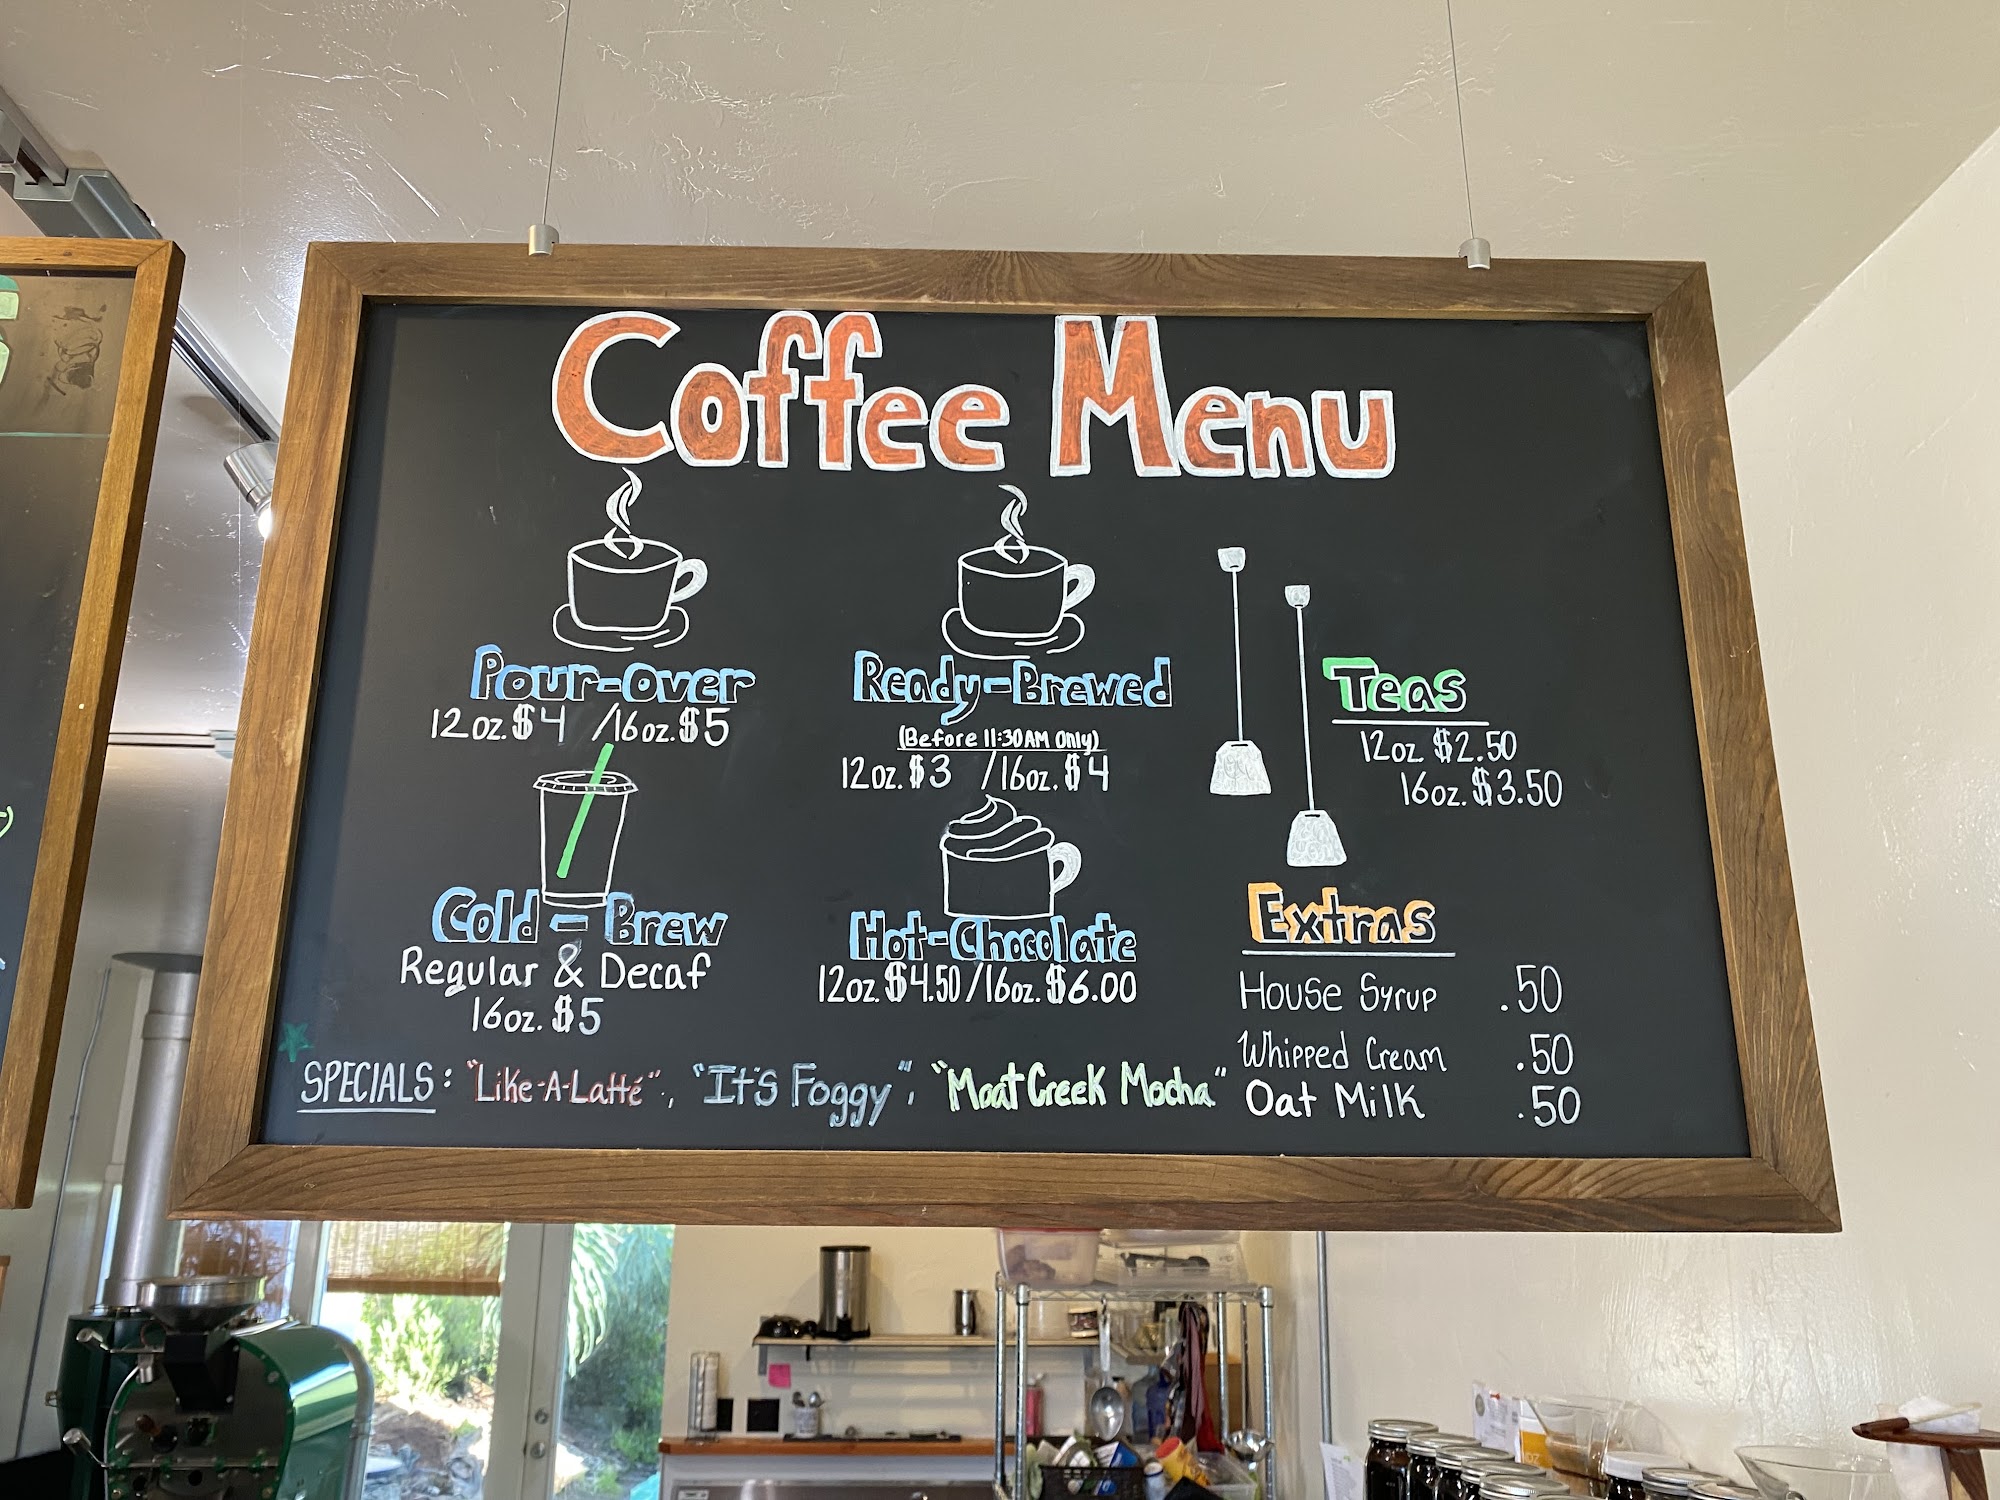 Coffee Menu
Pour-Over
12 oz. $4 / 16 oz. $5
Ready-Brewed
(Before 11:30AM Only)
12 oz. $3 / 16 oz. $4
Teas
12 oz $2.50
16 oz. $3.50
Cold-Brew
Regular & Decaf
16 oz. $5
Hot-Chocolate
12 oz. $4.50 / 16 oz. $6.00
Extras
House Syrup .50
Whipped Cream .50
Oat Milk .50
SPECIALS: "Like-A-Latté", "It's Foggy", "Moat Creek Mocha"